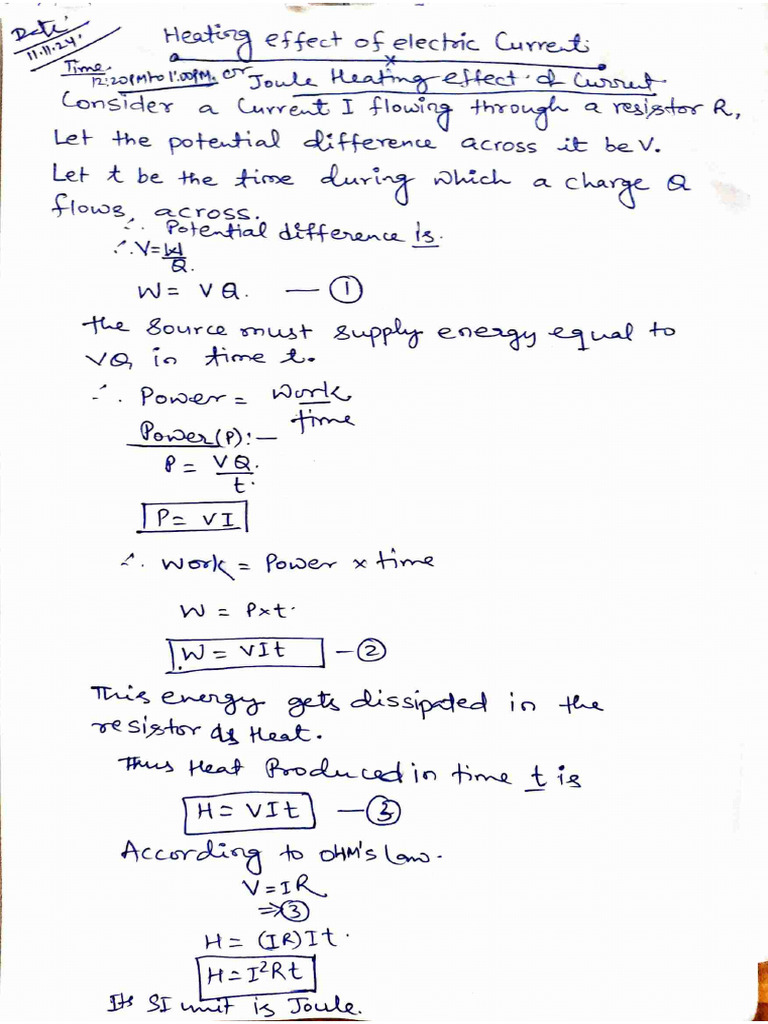 Date:
11.11.24.
Heating effect of electric Current:
Time.
12:20PM to 1:00PM. or Joule Heating effect of Current
Consider a Current I flowing through a resistor R,
Let the potential difference across it be V.
Let t be the time during which a charge Q
flows, across.
∴ Potential difference is.
∴ V = W/Q.
W = VQ. — ①
the Source must supply energy equal to
VQ in time t.
∴ Power = Work/time
Power(P):—
P = VQ./t.
P = VI
∴ Work = Power x time
W = Pxt.
W = VIt — ②
This energy gets dissipated in the
resistor as Heat.
Thus Heat Produced in time t is
H = VIt — ③
According to OHM's Law.
V = IR
⇒③
H = (IR)It.
H = I²Rt
Its SI unit is Joule.